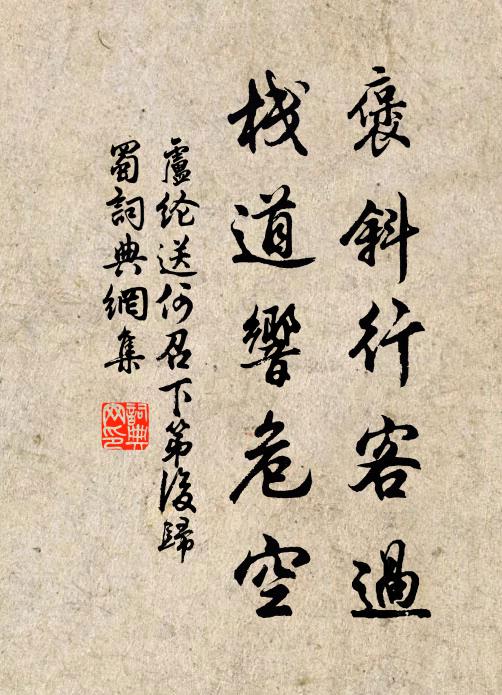 褒斜行客過
棧道響危空
盧纶送何召下第後歸
蜀詞典網集
詞典
网印